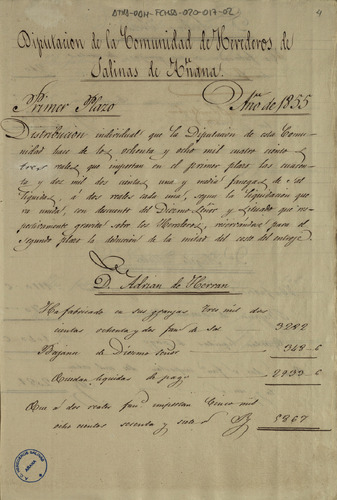 ATHA-DAH-FCHSA-020-017-02
4
Diputacion de la Comunidad de Herederos de
Salinas de Añana.
Primer Plazo Año de 1855
Distribucion individual que la Diputacion de esta Comu-
nidad hace de los ochenta y ocho mil cuatro ciento s
tres reales que importan en el primer plazo los cuaren-
ta y dos mil dos cientas una y media fanegas de sal
liquidas, á dos reales cada una, segun la liquidacion que
va unida, con descuento del Diezmo Señor y Letuado que res-
pectivamente gravita sobre los Herederos, reservandose para el
segundo plazo la deducion de la mitad del coste del entroje
D. Adrian de Herran
Ha fabricado en sus granjas tres mil dos
cientas ochenta y dos fan.s de Sal 3282
Bajan de Diezmo Señor 348
Quedan liquidas de pago 2933
Que á dos reales fan.a importan Cinco mil
ocho cientos sesenta y siete 5867
AÑANA